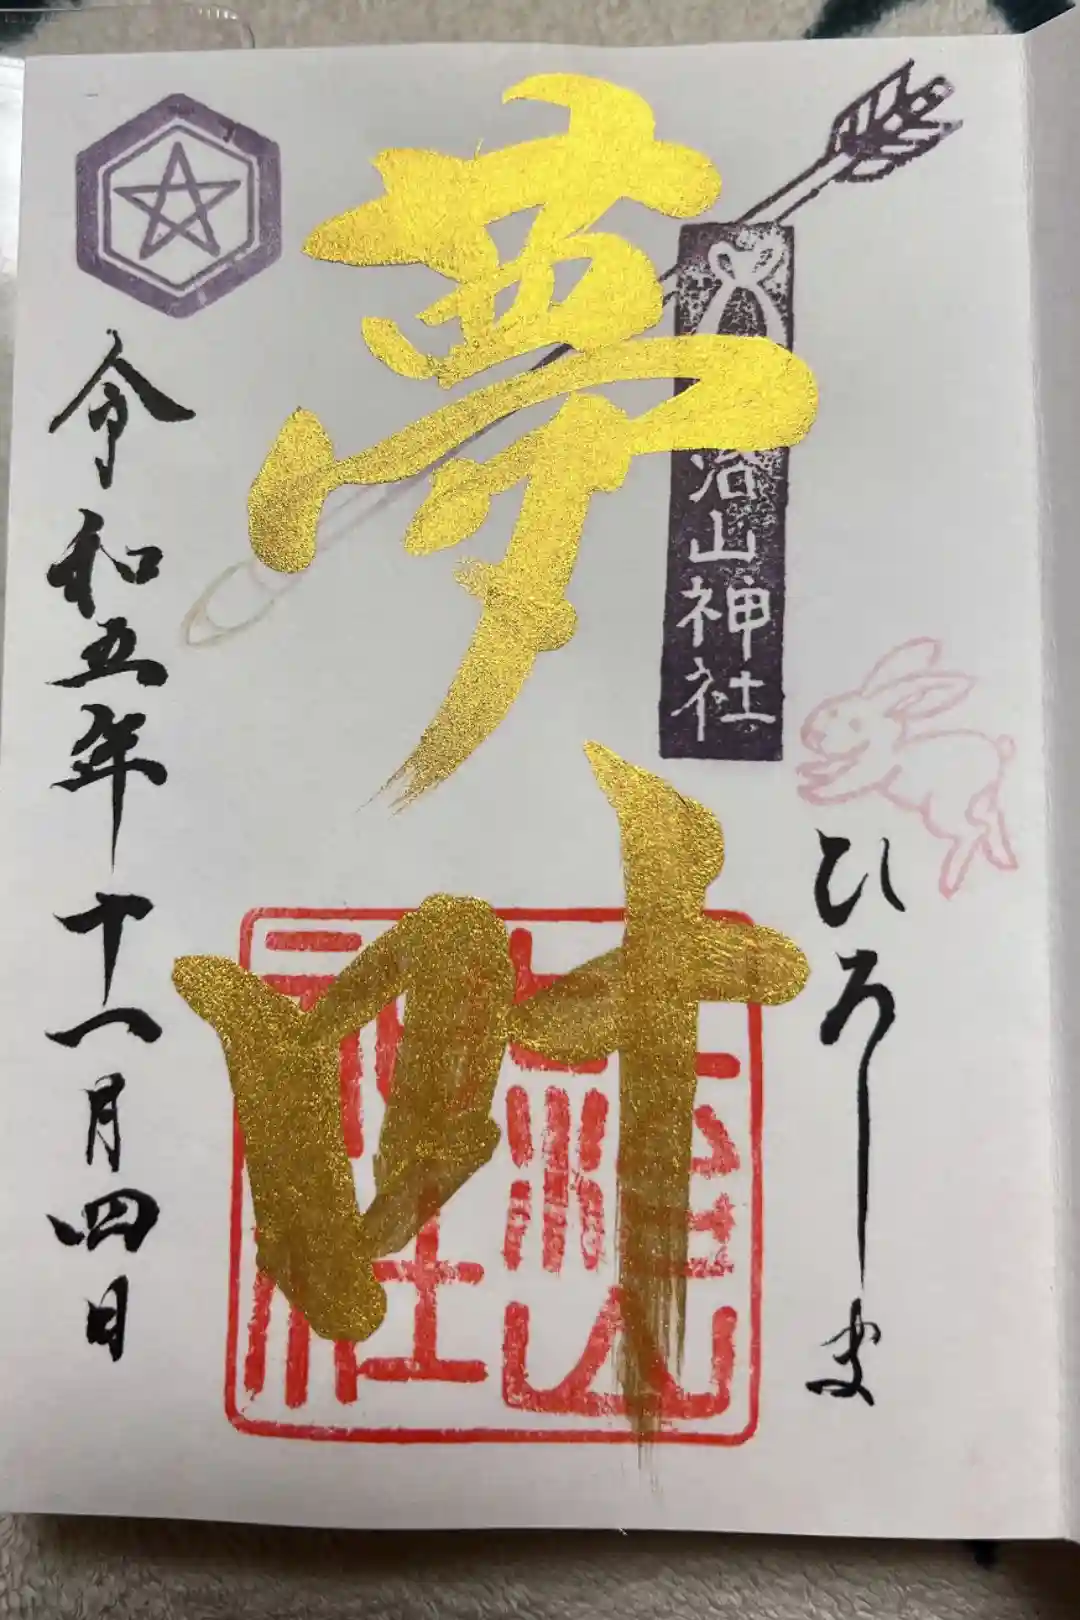 ひろしま
治山神社
夢叶
令和五年十一月四日